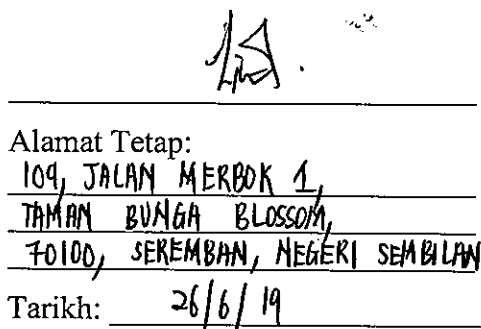 Alamat Tetap:
109, JALAN MERBOK 1,
TAMAN BUNGA BLOSSOM,
70100, SEREMBAN, NEGERI SEMBILAN
Tarikh: 26/6/19